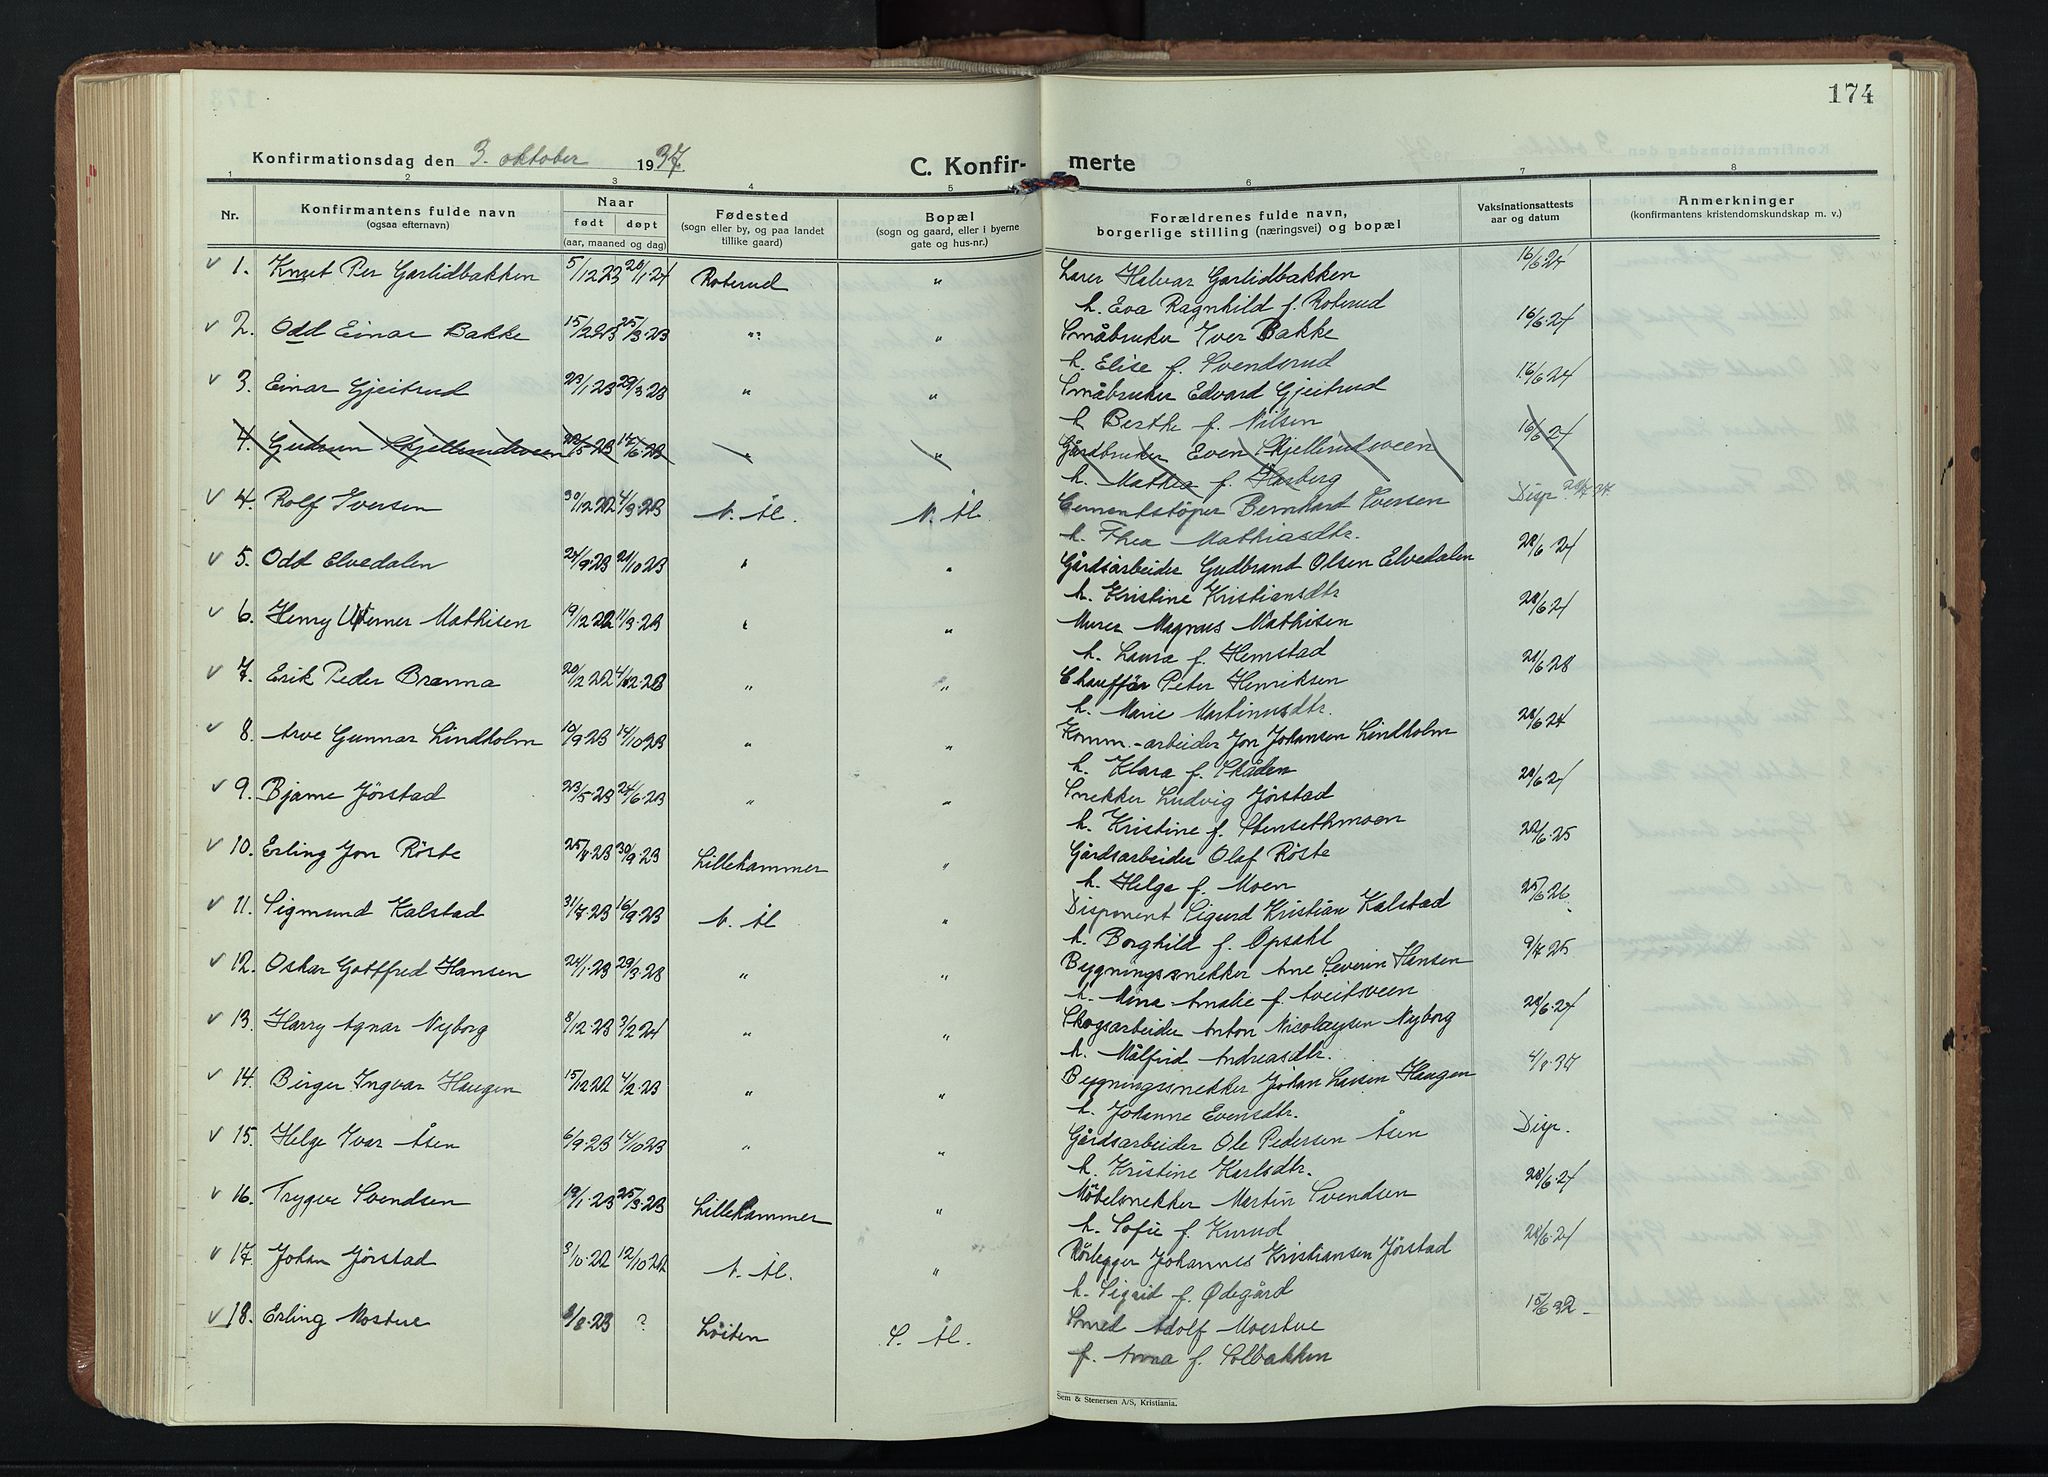 174
Konfirmationsdag den 3. oktober 1937.
C. Konfir- merte
1 2 3 4 5 6 7 8
Nr.
Konfirmantens fulde navn
(ogsaa efternavn)
Naar
født døpt
(aar, maaned og dag)
Fødested
(sogn eller by, og paa landet
tillike gaard)
Bopæl
(sogn og gaard, eller i byerne
gate og hus-nr.)
Forældrenes fulde navn,
borgerlige stilling (næringsvei) og bopæl
Vaksinationsattests
aar og datum
Anmerkninger
(konfirmantens kristendomskundskap m. v.)
1. Knut Per Garlidbakken 5/12 23 Roterud " Lærer Halvar Garlidbakken 16/6 24
h. Eva Ragnhild f. Roterud
2. Odd Einar Bakke 15/2 23 25/3.23 " " Småbruker Iver Bakke 16/6.24
h. Elise f. Svenderud
3. Einar Gjeitrud 23/1.23 " " Småbruker Edvard Gjeitrud 16/6 24
h Berthe f. Nilsen
4. Gudrun Skjellerudsveen 17/6.23 " " Gårdbruker Even Skjellerudsveen 16/6 24
h. Mathea f.
4. Rolf Iversen 30/12 22 4/3.23 N. Ål. N. Ål. Cementstøper Bernhard Iversen Disp
h. Thea Mathiasdtr.
5. Odd Elvedalen 24/9.23 21/10 23 " " Gårdsarbeider Gudbrand Olsen Elvedalen 28/6.24
h. Kristine Kristiansdtr
6. Henry Werner Mathisen 19/12 22 11/3.23 " " Murer Magnus Mathisen 28/6.24
h. Laura f. Hemstad
7. Erik Peder Brenna " " Chauffør Peter Henriksen
h. Marie Martinusdtr.
8. Arve Gunnar Lindholm 10/9.23 14/10 23 " " Komm.-arbeider Jon Johansen Lindholm 28/6 24
h. Klara f. Skåden
9. Bjarne Jørstad 23/5.23 24/6.23 " " Snekker Ludvig Jørstad
h. Kristine f. Stensethmoen
10. Erling Jon Røste 25/8.23 30/9.23 Lillehammer " Gårdsarbeider Olaf Røste
h. Helga f. Moen
11. Sigmund Kalstad 31/7.23 16/9.23 N. Ål " Disponent Sigurd Kristian Kalstad 25/6 26
h. Borghild f. Opsahl
12. Oskar Gottfred Hansen 24/1.23 " " Bygningssnekker Ane Severin Hansen 9/7 25
h. Mina Amalie f. Aveitsveen
13. Harry Agnar Nyborg 8/12.23 3/2 24 " " Skogsarbeider Anton Nicolaysen Nyborg 28/6.24
h. Målfrid Andreasdtr.
14. Birger Ingvar Haugen 15/12 22 4/2.23 " " Bygningssnekker Johan Larsen Haugen 4/8.37
h. Johanne Evensdtr.
15. Helge Ivar Åsen 6/9.23 14/10 23 " " Gårdsarbeider Ole Pedersen Åsen Disp.
h. Kristine Karlsdtr.
16. Trygve Svendsen 19/1.23 25/3.23 Lillehammer " Møbelsnekker Martin Svendsen 28/6.24
h. Sofie f. Kurud
17. Johan Jørstad 3/10.22 12/10 22 N. Ål. " Rørlegger Johannes Kristiansen Jørstad 28/6.24
h. Sigrid f. Ødegård
18. Erling Mostue 3/8.23 ? Løiten S. Ål. Smed Adolf Moestue 15/6 32
f. Anna f. Solbakken
Sem & Stenersen A/S, Kristiania.